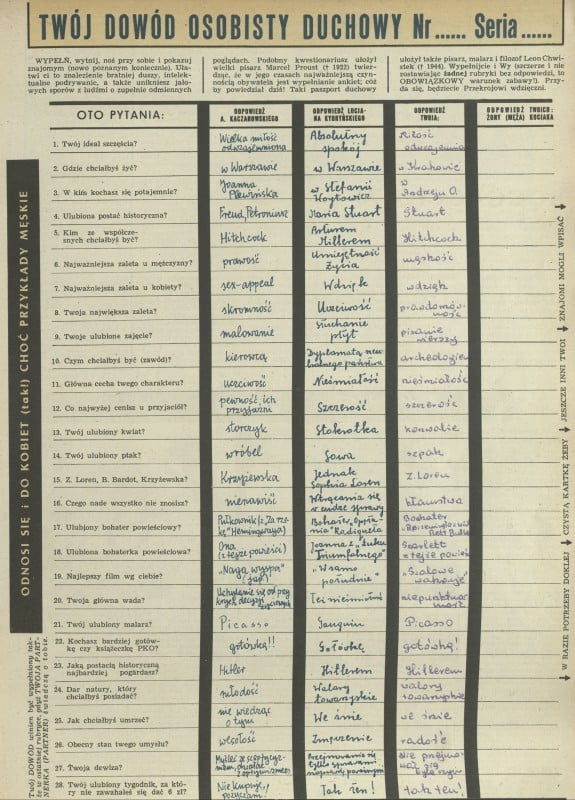 TWÓJ DOWÓD OSOBISTY DUCHOWY Nr...... Seria......
WYPEŁŃ, wytnij, noś przy sobie i pokazuj
znajomym (nowo poznanym koniecznie). Uła-
twi ci to znalezienie bratniej duszy, intelek-
tualne podrywanie, a także unikniesz jało-
wych sporów z ludźmi o zupełnie odmiennych
poglądach. Podobny kwestionariusz ułożył
wielki pisarz Marcel Proust († 1922) twier-
dząc, że w jego czasach najważniejszą czyn-
nością obywatela jest wypełnianie ankiet; cóż
by powiedział dziś! Taki paszport duchowy
ułożył także pisarz, malarz i filozof Leon Chwi-
stek († 1944). Wypełnijcie i Wy (szczerze i nie
zostawiając żadnej rubryki bez odpowiedzi, to
OBOWIĄZKOWY warunek zabawy!). Przy-
da się, będziecie Przekrojowi wdzięczni.
OTO PYTANIA:
ODPOWIEDŹ A. KACZANOWSKIEGO
ODPOWIEDŹ LUCJA- NA KYDRYŃSKIEGO
ODPOWIEDŹ TWOJA:
ODPOWIEDŹ TWOICH: ŻONY (MĘŻA) KOCIAKA
1. Twój ideał szczęścia? Wielka miłość odwzajemniona Absolutny spokój Miłość odwzajemniona
2. Gdzie chciałbyś żyć? w Warszawie w Warszawie w Krakowie
3. W kim kochasz się potajemnie? Joanna w Stefanii Woytowicz w Andrzeju O.
4. Ulubiona postać historyczna? Freud, Petroniusz Maria Stuart Stuart
5. Kim ze współcze- snych chciałbyś być? Hitchcock Arturem Millerem Hitchcock
6. Najważniejsza zaleta u mężczyzny? prawość Umiejętność Życia męskość
7. Najważniejsza zaleta u kobiety? sex-appeal Wdzięk wdzięk
8. Twoja największa zaleta? skromność Uczciwość prawdomów- ność
9. Twoje ulubione zajęcie? malowanie Słuchanie płyt pisanie wierszy
10. Czym chciałbyś być (zawód)? kierowcą Dyplomatą neu- tralnego państwa archeologiem
11. Główna cecha twego charakteru? uczciwość Nieśmiałość nieśmiałość
12. Co najwyżej cenisz u przyjaciół? pewność, ich przyjaźni Szczerość szczerość
13. Twój ulubiony kwiat? storczyk Stokrotka konwalie
14. Twój ulubiony ptak? wróbel Sowa szpak
15. Z. Loren, B. Bardot, Krzyżewska? Krzyżewska Jednak Sophia Loren Z. Loren
16. Czego nade wszystko nie znosisz? nienawiść Wtrącania się w cudze sprawy kłamstwa
17. Ulubiony bohater powieściowy? Pułkownik (z „Za rze- kę" Hemingwaya) Bohater „Opęta- nia" Radigueta Bohater
18. Ulubiona bohaterka powieściowa? Ona (z tejże powieści) Joanna z „Łuku Triumfalnego" Scarlett z tejże powieści
19. Najlepszy film wg ciebie? „Naga wyspa" (jap.) „W samo południe" „Szalowe
20. Twoja główna wada? Uchylanie się od przy krych decyzji życiowych Też nieśmiałość niepunktual- ność
21. Twój ulubiony malarz? Picasso Gauguin Picasso
22. Kochasz bardziej gotów- kę czy książeczkę PKO? gotówkę!! Gotówkę gotówkę!
23. Jaką postacią historyczną najbardziej pogardzasz? Hitler Hitlerem Hitlerem
24. Dar natury, który chciałbyś posiadać? młodość Walory towarzyskie walory towarzyskie
25. Jak chciałbyś umrzeć? nie wiedząc o tym We śnie we śnie
26. Obecny stan twego umysłu? wesołość Zmęczenie radość
27. Twoja dewiza?
28. Twój ulubiony tygodnik, za któ- ry nie zawahałeś się dać 6 zł? Nie kupuję, pożyczam! Tak ten! tak ten!
ODNOSI SIĘ i DO KOBIET (tak!) CHOĆ PRZYKŁADY MĘSKIE
Twój DOWÓD winien być wypełniony tak-
że w ostatniej rubryce, gdyż TWOJA PART-
NERKA (PARTNER) świadczą o tobie.
W RAZIE POTRZEBY DOKLEJ CZYSTĄ KARTKĘ ŻEBY JESZCZE INNI TWOI ZNAJOMI MOGLI WPISAĆ